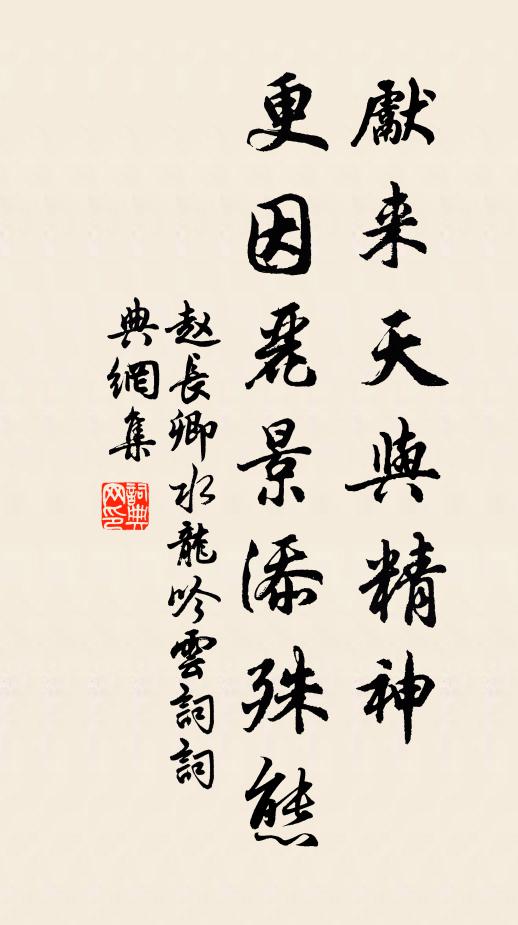 獻来天與精神
更因麗景添殊態
赵長卿水龍吟雲詞詞
典網集
詞典網印